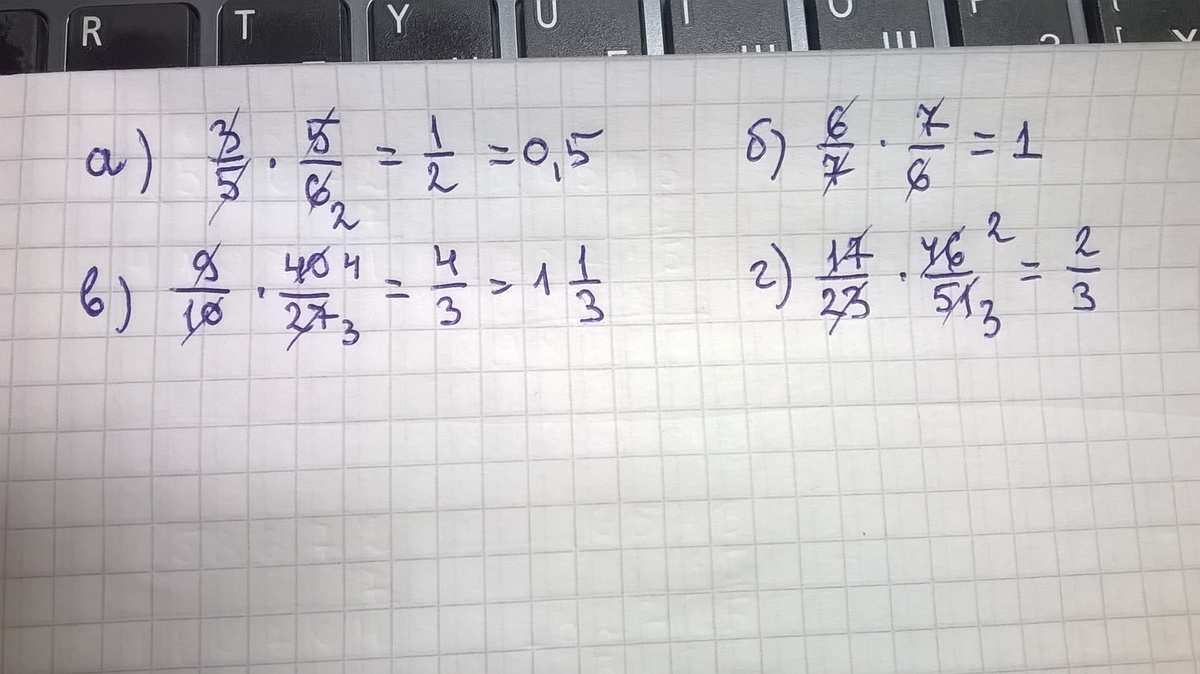 R T Y U
а) 3/5 · 5/6 2 = 1/2 = 0,5
б) 6/7 · 7/6 = 1
в) 9/10 · 40/27 4 3 = 4/3 = 1 1/3
г) 17/23 · 46/51 2 3 = 2/3